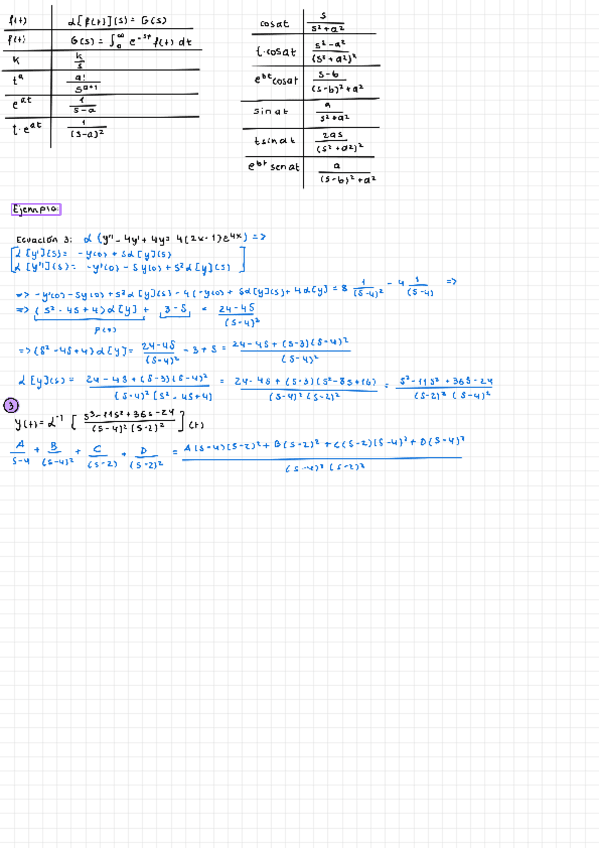 f(t) α[f(t)](s) = G(s)
f(t) G(s) = ∫₀^∞ e^-st f(t) dt
K k/s
t^a a!/s^(a+1)
e^at 1/(s-a)
t·e^at 1/(s-a)²
cosat s/(s²+a²)
t·cosat (s²-a²)/(s²+a²)²
e^bt cosat (s-b)/((s-b)²+a²)
sin at a/(s²+a²)
tsinat 2as/(s²+a²)²
e^bt senat a/((s-b)²+a²)
Ejemplo
Ecuación 3: α(y''-4y'+4y = 4(2x-1)e^4x) =>
α[y'](s) = -y(0) + sα[y](s)
α[y''](s) = -y'(0) - sy(0) + s²α[y](s)
=> -y'(0) - sy(0) + s²α[y](s) - 4(-y(0) + sα[y](s) + 4α[y] = 8 1/(s-4)² - 4 1/(s-4) =>
=> (s²-4s+4)α[y] + 3-s = (24-4s)/(s-4)²
P(s)
=> (s²-4s+4)α[y] = (24-4s)/(s-4)² - 3 + s = (24-4s+(s-3)(s-4)²)/(s-4)²
α[y](s) = (24-4s+(s-3)(s-4)²)/((s-4)²[s²-4s+4)) = (24-4s+(s-3)(s²-8s+16))/((s-4)²(s-2)²) = (s³-11s²+36s-24)/((s-2)²(s-4)²)
3
y(t) = α⁻¹[(s³-11s²+36s-24)/((s-4)²(s-2)²)](t)
A/(s-4) + B/(s-4)² + C/(s-2) + D/(s-2)² = (A(s-4)(s-2)² + B(s-2)² + C(s-2)(s-4)² + D(s-4)²)/((s-4)²(s-2)²)